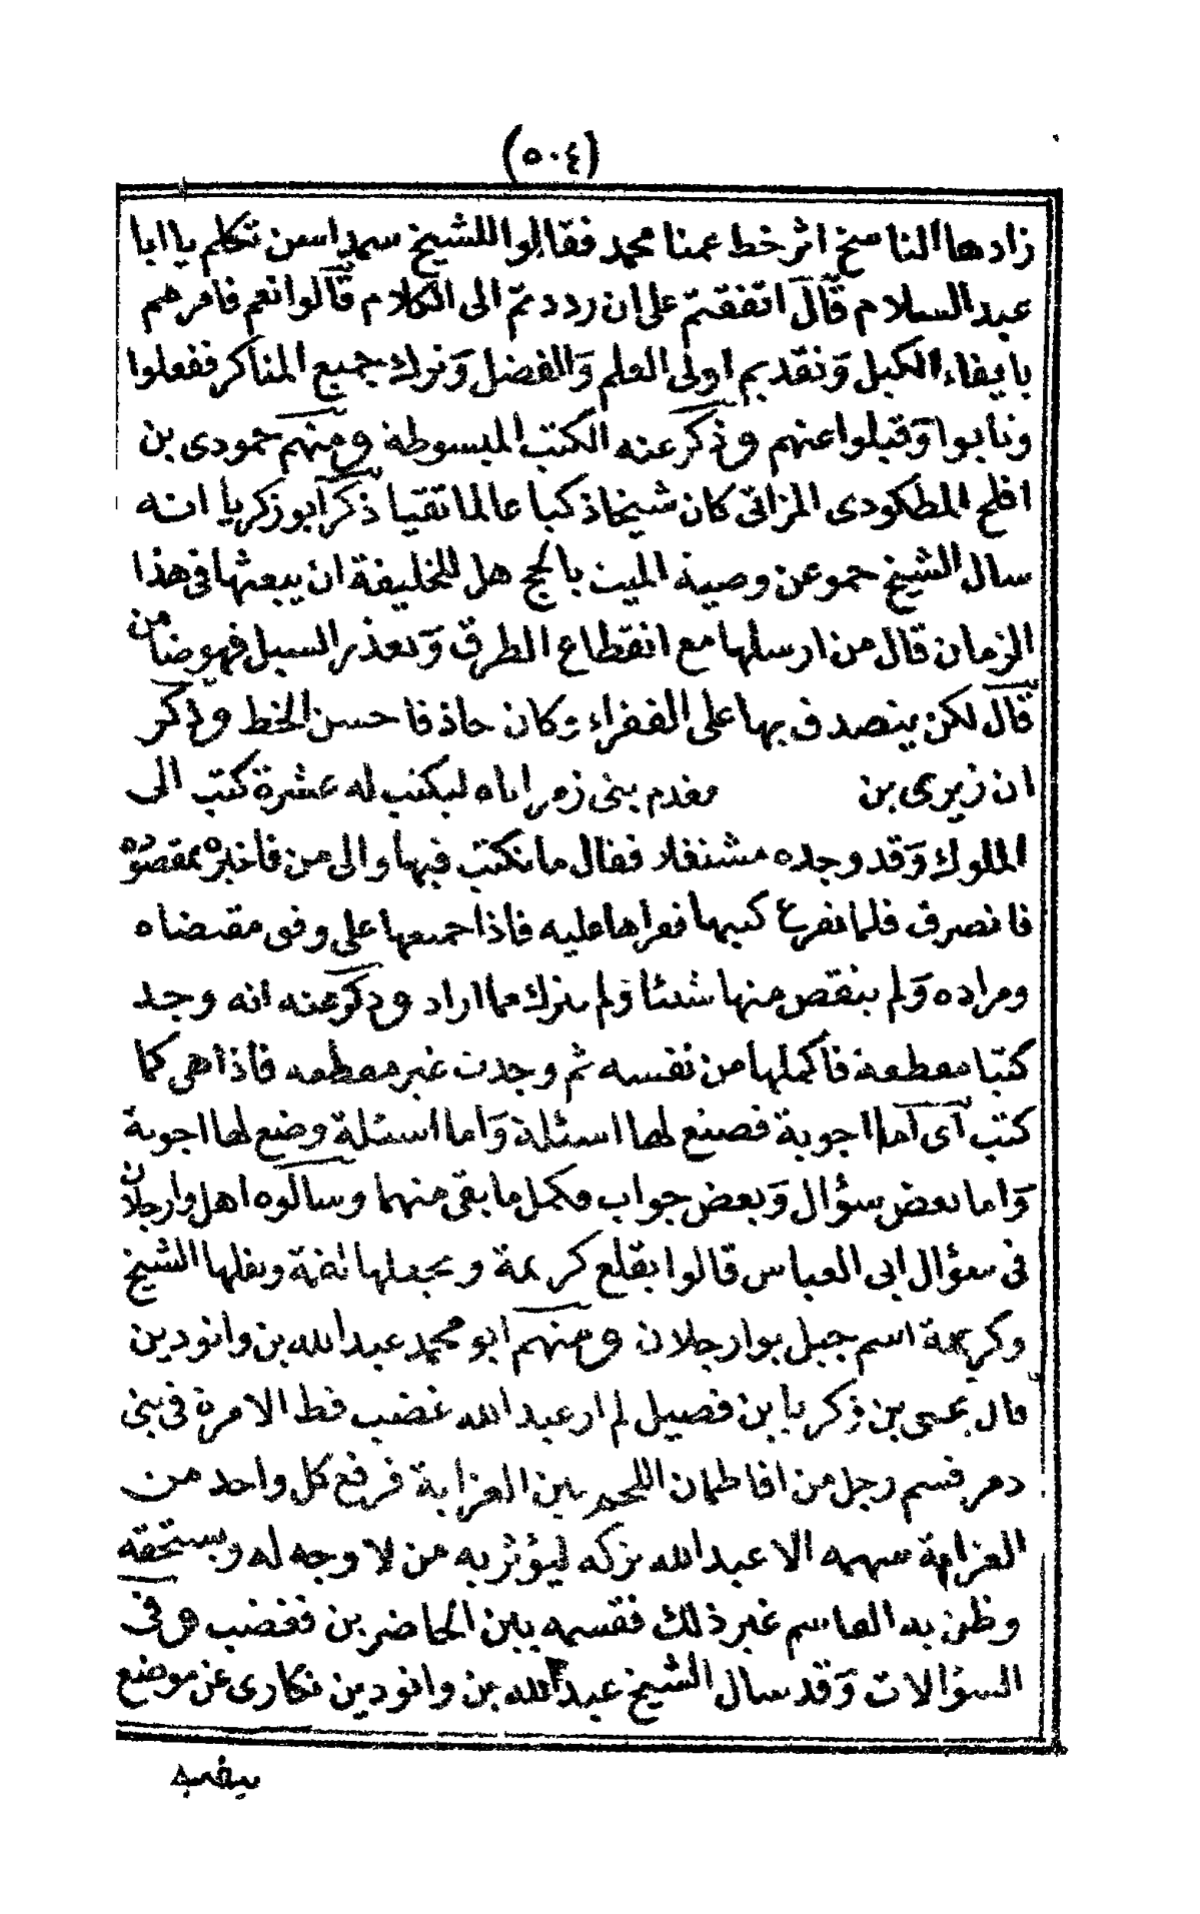 (٥٠٤)
زادها الناسخ اثر خط عمنا محمد فقالوا للشيخ سمداسن تكلم يا ابا
عبد السلام قال اتفقتم على ان رددتم الى الكلام قالوا نعم فامرهم
بايفاء الكيل وتقديم اولى العلم والفضل وترك جميع المناكر ففعلوا
وتابوا وقبلوا عنهم وذكر عنه الكتب المبسوطة ومنهم حمودى بن
افلح المطكودى المزاتى كان شيخا ذكيا عالما تقيا ذكر ابو زكريا انه
سال الشيخ حمو عن وصية الميت بالحج هل للخليفة ان يبعثها فى هذا
الزمان قال من ارسلها مع انقطاع الطرق وتعذر السبل فهو ضامن
قال لكن يتصدق بها على الفقراء وكان حاذقا حسن الخط وذكر
ان زيرى بن مقدم بنى زمراناه ليكتب له عشرة كتب الى
الملوك وقد وجده مشتغلا فقال ما نكتب فيها والى من فاخبره بمقصوده
فانصرف فلما تفرغ كتبها فقراها عليه فاذا جميعها على وفق مقتضاه
ومراده ولم ينقص منها شئا ولم يترك مما اراد وذكر عنه انه وجد
كتبا مقطعة فاكملها من نفسه ثم وجدت غير مقطعه فاذا هى كما
كتب اى اما اجوبة فصنع لها اسئلة واما اسئلة وضع لها اجوبة
واما بعض سؤال وبعض جواب فكمل ما بقى منهما وسالوه اهل وارجلان
فى سؤال ابى العباس قالوا يقلع كريمة ويجعلها ثفة وينقلها الشيخ
وكريمة اسم جبل بوارجلان ومنهم ابو محمد عبد الله بن وانودين
قال يحيى بن زكريا بن فصيل لم ار عبد الله غضب قط الا مرة فى بنى
دمر قسم رجل من افاطمان اللحم بين العزابة فرفع كل واحد من
العزابة سهمه الا عبد الله تركه ليؤثر به من لا وجه له ويستحقه
وظن به القاسم غير ذلك فقسمه بين الحاضرين فغضب هو فى
السؤالات وقد سال الشيخ عبد الله بن وانودين نكارى عن موضع